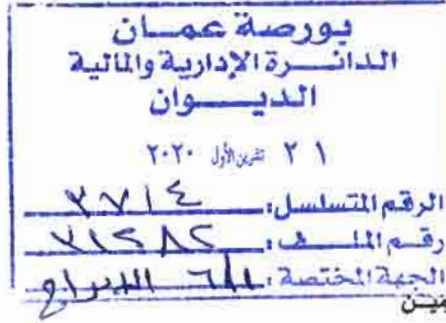 بورصة عمان
الدائرة الإدارية والمالية
الديوان
٢١ تشرين الأول ٢٠٢٠
الرقم المتسلسل: ٣٧١٤
رقم الملف: ٣١٢٨٢
الجهة المختصة: الادراج
مين